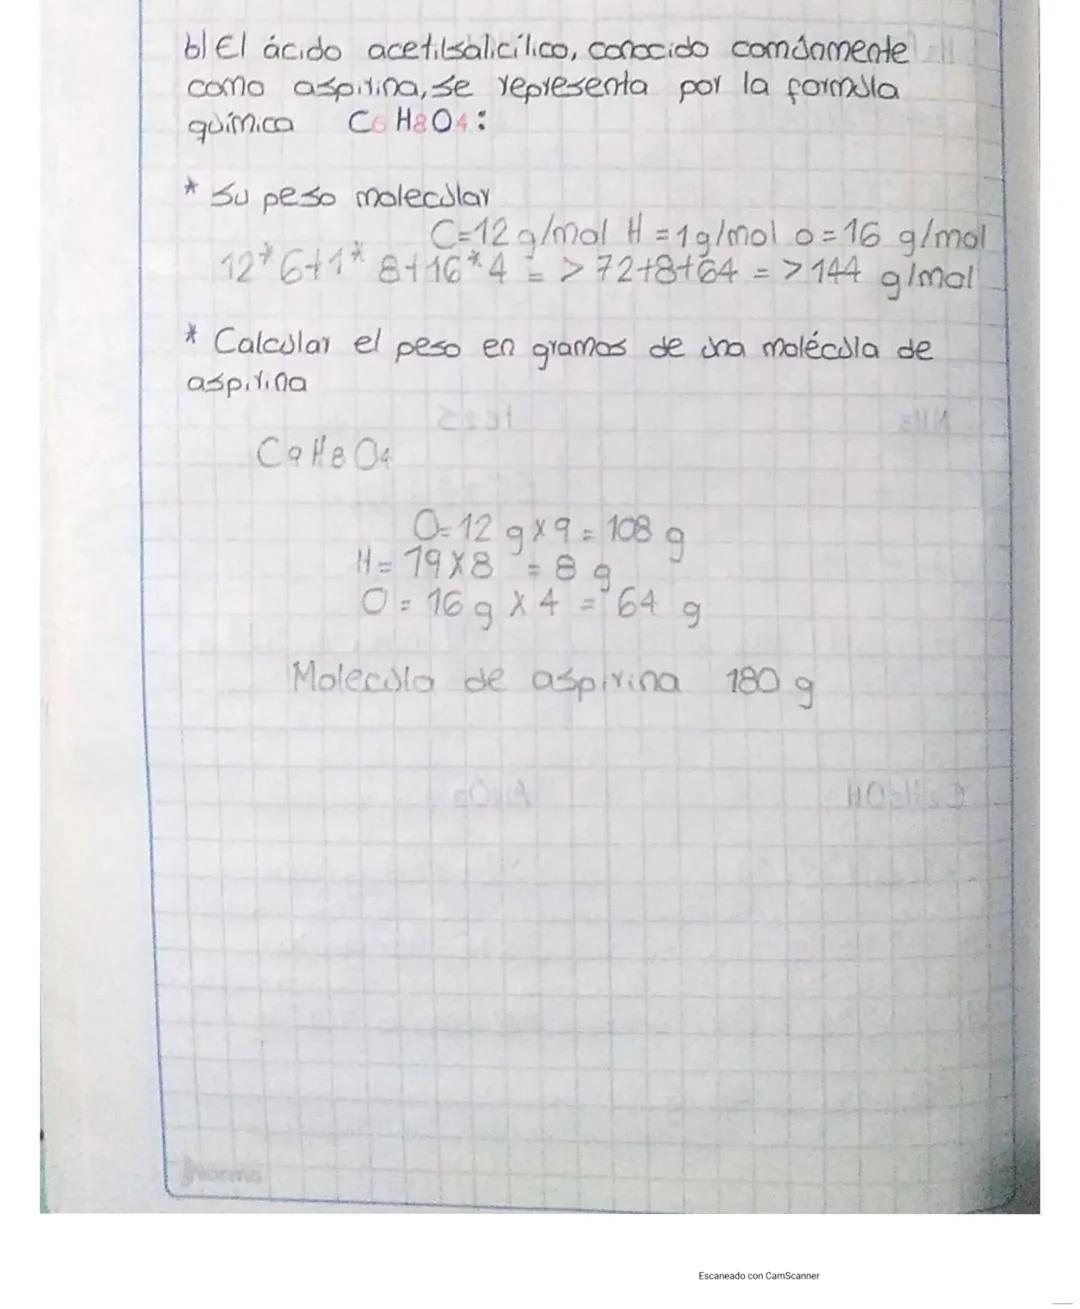 b) El ácido acetilsalicílico, conocido comúnmente
como aspirina, se representa por la formula
química C6 H8 O4:
* Su peso molecular
C=12 g/mol H=1g/mol O=16 g/mol
12*6+1*8+16*4 => 72+8+64 => 144 g/mol
* Calcular el peso en gramos de una molécula de
aspirina
C9H8O4
C=12 g x 9 = 108 g
H= 1g x 8 = 8 g
O = 16 g x 4 = 64 g
Molecula de aspirina 180 g
Norma
Escaneado con CamScanner